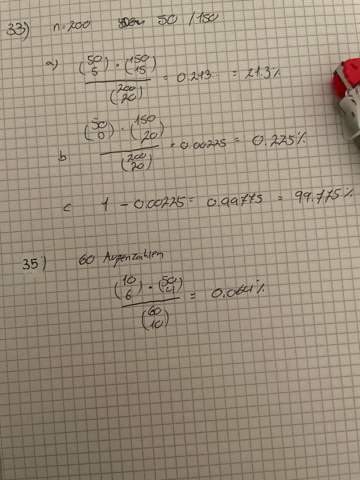 33) n=200 50 / 150
a) (50 5) · (150 15) / (200 20) = 0.213 = 21.3%
b (50 0) · (150 20) / (200 20) = 0.00225 = 0.225%
c 1 - 0.00225 = 0.99775 = 99.775%
35) 60 Augenzahlen
(10 6) · (50 4) / (60 10) = 0.064%